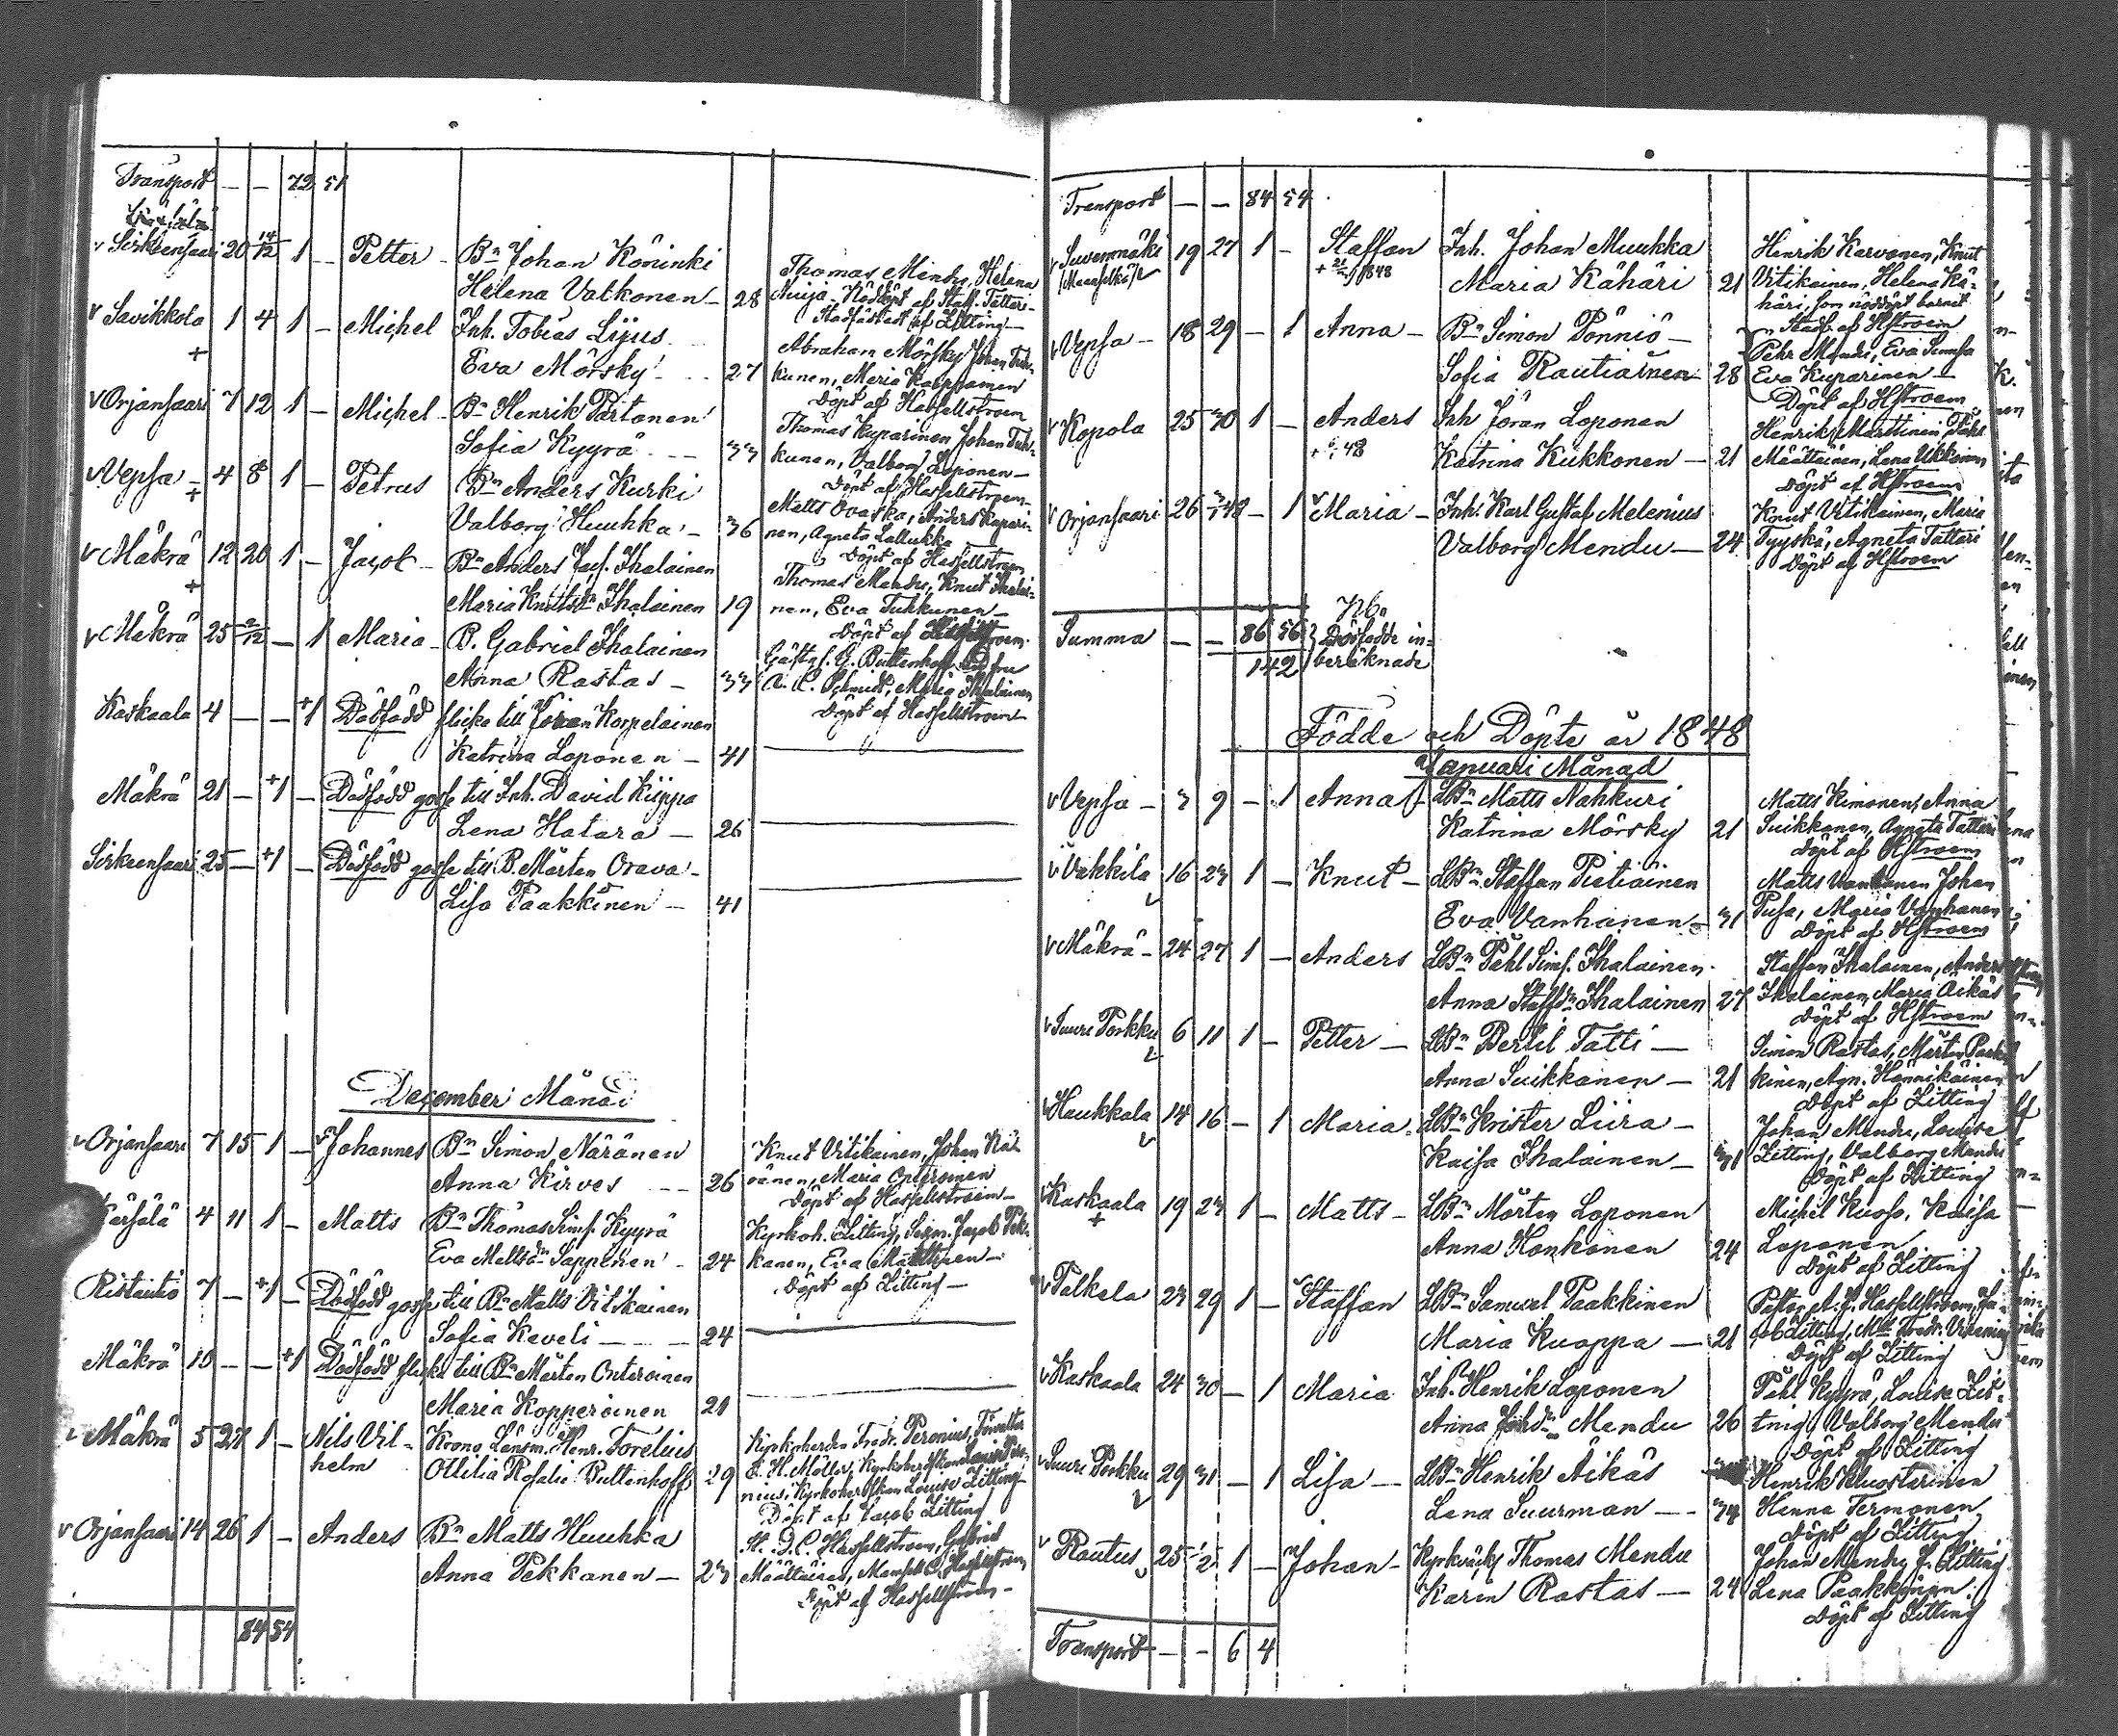 Transport — — 72 51
Sirkiensaari 20 14/12 1 — Petter — Bn Johan Köninki
Helena Valkonen — 28
Thomas Mendu, Helena
Nuija. Nöddöpt af Staff. Tattari
Stadfästadt af Zitting —
v Savikkola 1 4 1 — Michel Inh. Tobias Lijus
+ Eva Mörsky — 27
Abraham Mörsky, Johan Tuk-
kunen, Maria Kaippainen
Döpt af Hassellstroem
v Orjansaari 7 12 1 — Michel — Bn Henrik Partanen
Sofia Kyyrä — 33
Thomas Kuparinen Johan Tuk-
kunen, Valborg Loponen —
Döpt af Hassellstroem
v Vepsa — 4 8 1 — Petrus Bn Anders Kurki
+ Valborg Huuhka — 36
Matts Ovaska, Anders Kupari-
nen, Agneta Lallukka
Döpt af Hassellstroem
v Mäkrä 12 20 1 — Jacob — Bn Anders Jacs. Ihalainen
+ Maria Knutsdn Ihalainen 19
Thomas Mendu, Knut Ihalai-
nen, Eva Tukkunen —
Döpt af Hassellstroem
v Mäkrä 25 2/12 — 1 Maria — B. Gabriel Ihalainen
Anna Rastas — 33
Gästg. G. Buttenhoff
A. C. Schmidt, Maria Ihalainen
Döpt af Hassellstroem
Kaskaala 4 — — +1 Dödfödd flicka till Jöran Korpelainen
Katrina Loponen — 41
Mäkrä 21 — +1 — Dödfödd gosse till Inh. David Kiippa
Lena Hatara — 26
Sirkiensaari 25 — +1 — Dödfödd gosse till B. Mårten Orava —
Lisa Paakkinen — 41
December Månad
v Orjansaari 7 15 1 — v Johannes Bn Simon Näränen
Anna Kirves — 26
Knut Vitikainen, Johan Nä-
ränen, Maria Onteroinen
Döpt af Hassellstroem —
Kärsälä 4 11 1 — Matts Bn Thomas Sims. Kyyrä
Eva Mattsdn Sappinen — 24
Kyrkoh. Zitting, Sexm. Jacob Pek-
kanen, Eva
Döpt af Zitting —
Ristautio 7 — +1 — Dödfödd gosse till Bn Matts Vitikainen
Sofia Keveli — 24
Mäkrä 10 — — +1 Dödfödd flicka till Bn Mårten Onteroinen
Maria Kopperoinen 21
v Mäkrä 5 27 1 — Nils Vil- Krono Länsm. Henr. Forelius
helm Ottilia Rosalie Buttenhoff 29
Kyrkoherden Fredr. Peronius,
E. H. Möller, Kyrkoherdskan Louise Pero-
nius, Kyrkoherdskan Louise Zitting
Döpt af Jacob Zitting
v Orjansaari 14 26 1 — Anders Bn Matts Huuhka
Anna Pekkanen — 23
Hassellstroem, Gabriel
Määttäinen, Mamsell C. Hassellstroem
Döpt af Hassellstroem —
84 54
Transport — — 84 54
v Suvenmäki 19 27 1 — Staffan Inh. Johan Muukka
(Maanselkä) + 1848 Maria Kähäri 21
Henrik Karvonen, Knut
Vitikainen, Helena Kä-
häri, som nöddöpt barnet
Stadf. af Hstroem
v Vepsa — 18 29 — 1 Anna — Bn Simon Pönniö —
Sofia Rautiainen 28
Pehr Mendu, Eva Sinnsa
Eva Kuparinen —
Döpt af Hstroem
v Kopola 25 30 1 — Anders Inh Jöran Loponen
+ 48 Katrina Kukkonen — 21
Henrik Marttinen, Påhl
Määttäinen, Lena Ukkonen
Döpt af Hstroem
v Orjansaari 26 3/1 48 — 1 v Maria — Inh. Karl Gustaf Melenius
Valborg Mendu — 24
Knut Vitikainen, Maria
Tyyskä, Agneta Tattari
Döpt af Hstroem
Nb.
Summa — — 86 56 } Dödfödde in-
142 beräknade
Födde och Döpte år 1848
Januari Månad
v Vepsa — 3 9 — 1 Anna LBn Matts Nahkuri
Katrina Mörsky 21
Matts Kimonen, Anna
Suikkanen, Agneta Tattari
Döpt af Hstroem
v Vakkila 16 23 1 — Knut — LBn Staffan Pietiäinen
Eva Vanhanen — 31
Matts Vanhanen Johan
Pusa, Maria Vanhanen
Döpt af Hstroem
v Mäkrä — 24 27 1 — Anders LBn Påhl Sims. Ihalainen
Anna Staffdn Ihalainen 27
Staffan Ihalainen, Anders
Ihalainen, Maria Äikäs
Döpt af Hstroem
v Suuri Porkku 6 11 1 — Petter — LBn Bertil Tatti —
Anna Suikkanen — 21
Simon Rastas, Mårten Paak-
kinen, Agn. Hännikäinen
Döpt af Zitting
v Haukkala 14 16 — 1 Maria LBn Krister Liira —
Kaisa Ihalainen — 31
Johan Mendu, Louise
Zitting, Valborg Mendu
Döpt af Zitting
v Kaskaala 19 23 1 — Matts — LBn Mårten Loponen
+ Anna Honkanen 24
Michel Kuosa, Kaisa
Loponen
Döpt af Zitting
v Palkela 23 29 1 — Staffan LBn Samuel Paakkinen
Maria Kuoppa — 21
Pastor A. J. Hassellstroem, Ja-
cob Zitting, Mll Fredr.
Döpt af Zitting
v Kaskaala 24 30 — 1 Maria Inh. Henrik Loponen
Anna Mendu 26
Påhl Kyyrä, Louise Zit-
ting, Valborg Mendu
Döpt af Zitting
v Suuri Porkku 29 31 — 1 Lisa — LBn Henrik Äikäs
Lena Suurman — 34
Henrik Kuostarinen
Henna Termonen
Döpt af Zitting
v Rautus 25 1/2 1 — Johan — Kyrkväkt. Thomas Mendu
Karin Rastas — 24
Johan Mendu, J. Zitting
Lena Paakkinen
Döpt af Zitting
Transport — — 6 4